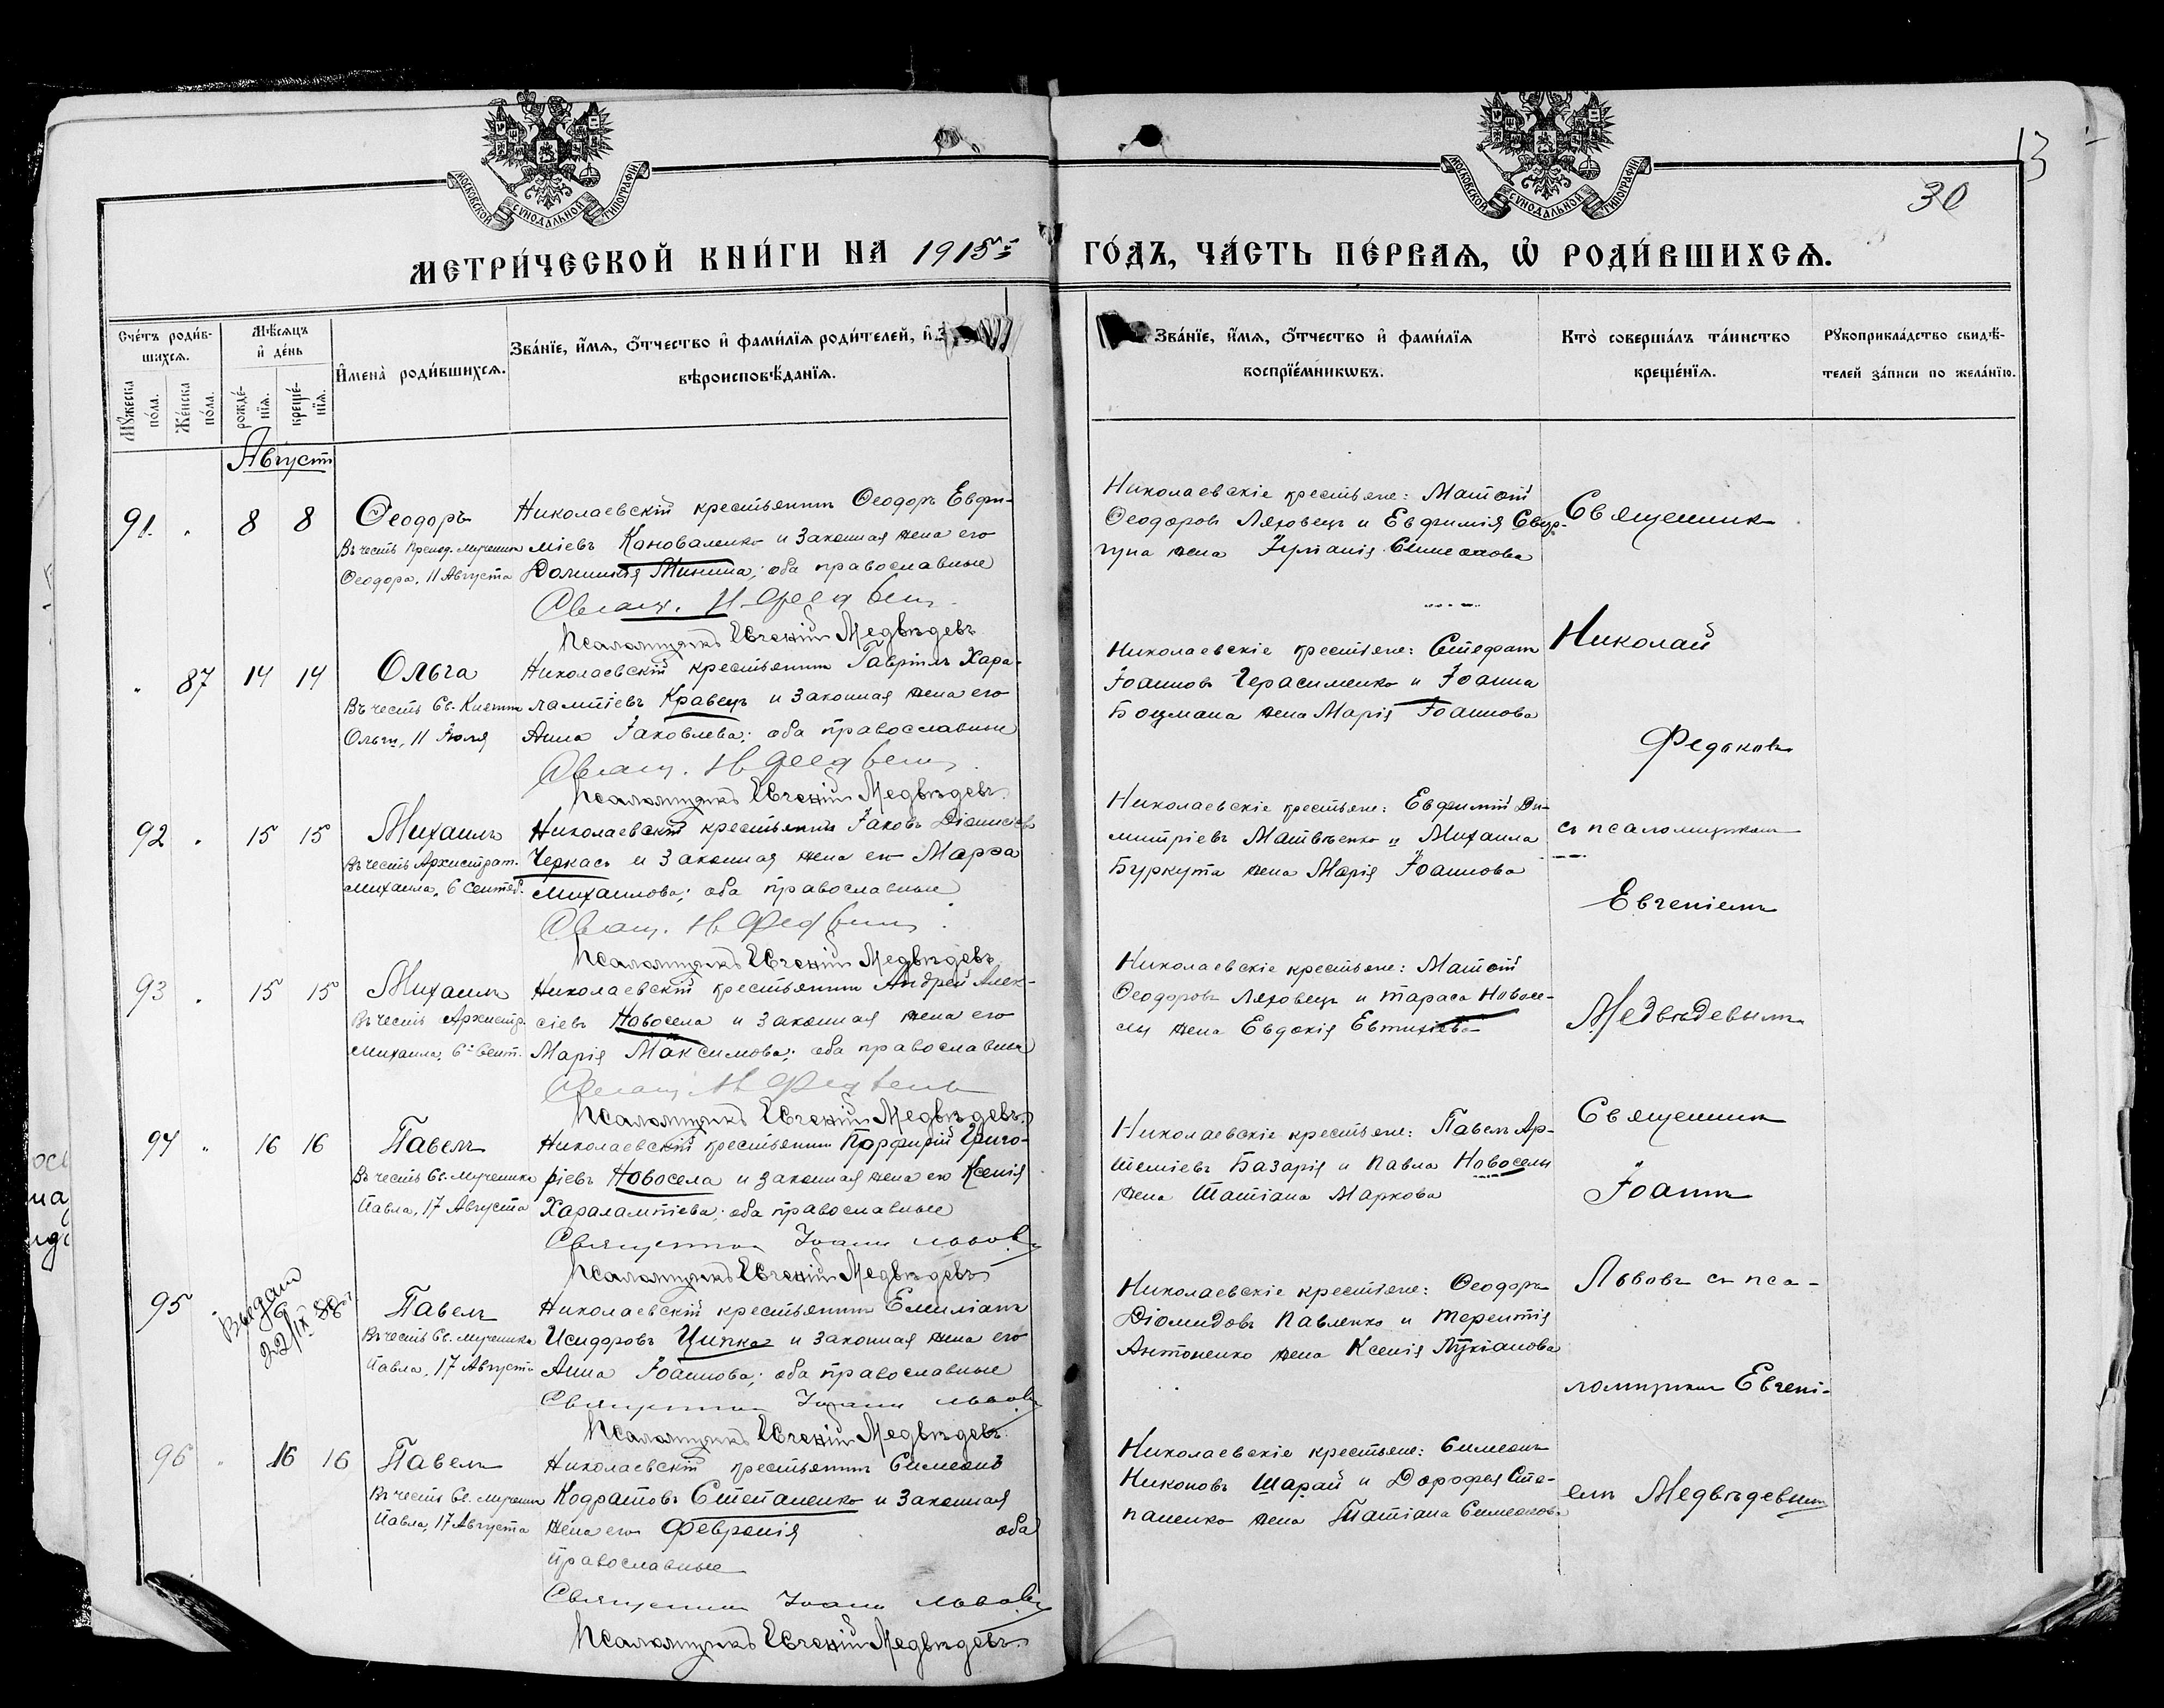 МОСКОВСКОЙ СѴНОДАЛЬНОЙ ТИПОГРАФІИ
МОСКОВСКОЙ СѴНОДАЛЬНОЙ ТИПОГРАФІИ
13
30
МЕТРИ́ЧЕСКОЙ КНИ́ГИ НА 1915й
ГО́ДЪ, ЧА́СТЬ ПЕ́РВАѦ, Ѡ҆ РОДИ́ВШИХСѦ.
Сче́тъ роди́в-
шихсѧ.
Мꙋ́жеска по́ла.
Же́нска по́ла.
Мѣ́сѧцъ
и҆ де́нь
рожде́-
нїѧ.
креще́-
нїѧ.
И҆мена̀ роди́вшихсѧ.
Зва́нїе, и҆́мѧ, ѻ҆́тчество и҆ фами́лїѧ роди́телей, и҆
вѣроисповѣ́данїѧ.
Зва́нїе, и҆́мѧ, ѻ҆́тчество и҆ фами́лїѧ
воспрїе́мникѡвъ.
Кто̀ соверша́лъ та́инство
креще́нїѧ.
Рꙋкоприкла́дство свидѣ́-
телей за́писи по жела́нїю.
Августъ
91. " 8 8
Ѳеодоръ
Въ честь Препод. мученика
Ѳеодора, 11 Августа
Николаевскій крестьянинъ Ѳеодоръ Евфи-
міевъ Коноваленко и законная жена его
Домникія Минина; оба православные
Псаломщикъ Евгеній Медвѣдевъ
Николаевскіе крестьяне: Матѳій
Ѳеодоровъ Ляховецъ и Евфимія Свер-
гуна жена Іуліанія Симеонова
" 87 14 14
Ольга
Въ честь Св. Княгини
Ольги, 11 Іюля
Николаевскій крестьянинъ Гавріилъ Хара-
лампіевъ Кравецъ и законная жена его
Анна Іаковлева; оба православные
Псаломщикъ Евгеній Медвѣдевъ
Николаевскіе крестьяне: Стефанъ
Іоанновъ Герасименко и Іоанна
Боцмана жена Марія Іоаннова
92 " 15 15
Михаилъ
Въ честь Архистрат.
Михаила, 6 Сентяб.
Николаевскій крестьянинъ Іаковъ Діонисіевъ
Черкасъ и законная жена его Марѳа
Михаилова; оба православные
Псаломщикъ Евгеній Медвѣдевъ
Николаевскіе крестьяне: Евфимій Ди-
митріевъ Матвѣенко и Михаила
Буркута жена Марія Іоаннова
93 " 15 15
Михаилъ
Въ честь Архистр.
Михаила, 6й Сент.
Николаевскій крестьянинъ Андрей Алек-
сіевъ Новосела и законная жена его
Марія Максимова; оба православные
Псаломщикъ Евгеній Медвѣдевъ
Николаевскіе крестьяне: Матѳій
Ѳеодоровъ Ляховецъ и Тараса Новосе-
лы жена Евдокія Евтихіева
94 " 16 16
Павелъ
Въ честь Св. Мученика
Павла, 17 Августа
Николаевскій крестьянинъ Порфирій Григо-
ріевъ Новосела и законная жена его Ксенія
Харалампіева; оба православные
Священникъ Іоаннъ Львовъ
Псаломщикъ Евгеній Медвѣдевъ
Николаевскіе крестьяне: Павелъ Ар-
теміевъ Базарія и Павла Новоселы
жена Татіана Маркова
95
Павелъ
Въ честь Св. Мученика
Павла, 17 Августа
Николаевскій крестьянинъ Емиліанъ
Исидоровъ Ципка и законная жена его
Анна Іоаннова; оба православные
Священникъ Іоаннъ Львовъ
Псаломщикъ Евгеній Медвѣдевъ
Николаевскіе крестьяне: Ѳеодоръ
Діомидовъ Павленко и Терентія
Антоненко жена Ксенія Лукіанова
96 " 16 16
Павелъ
Въ честь Св. Мученик
Павла, 17 Августа
Николаевскій крестьянинъ Симеонъ
Кодратовъ Степаненко и законная
жена его Февронія оба
православные
Священникъ Іоаннъ Львовъ
Псаломщикъ Евгеній Медвѣдевъ
Николаевскіе крестьяне: Симеонъ
Никоновъ Шарай и Дорофея Сте-
паненко жена Татіана Симеонова
Священникъ
Николай
Федоковъ
съ псаломщикомъ
Евгеніемъ
Медвѣдевымъ
Священникъ
Іоаннъ
Львовъ съ пса-
ломщикомъ Евгені-
емъ Медвѣдевымъ